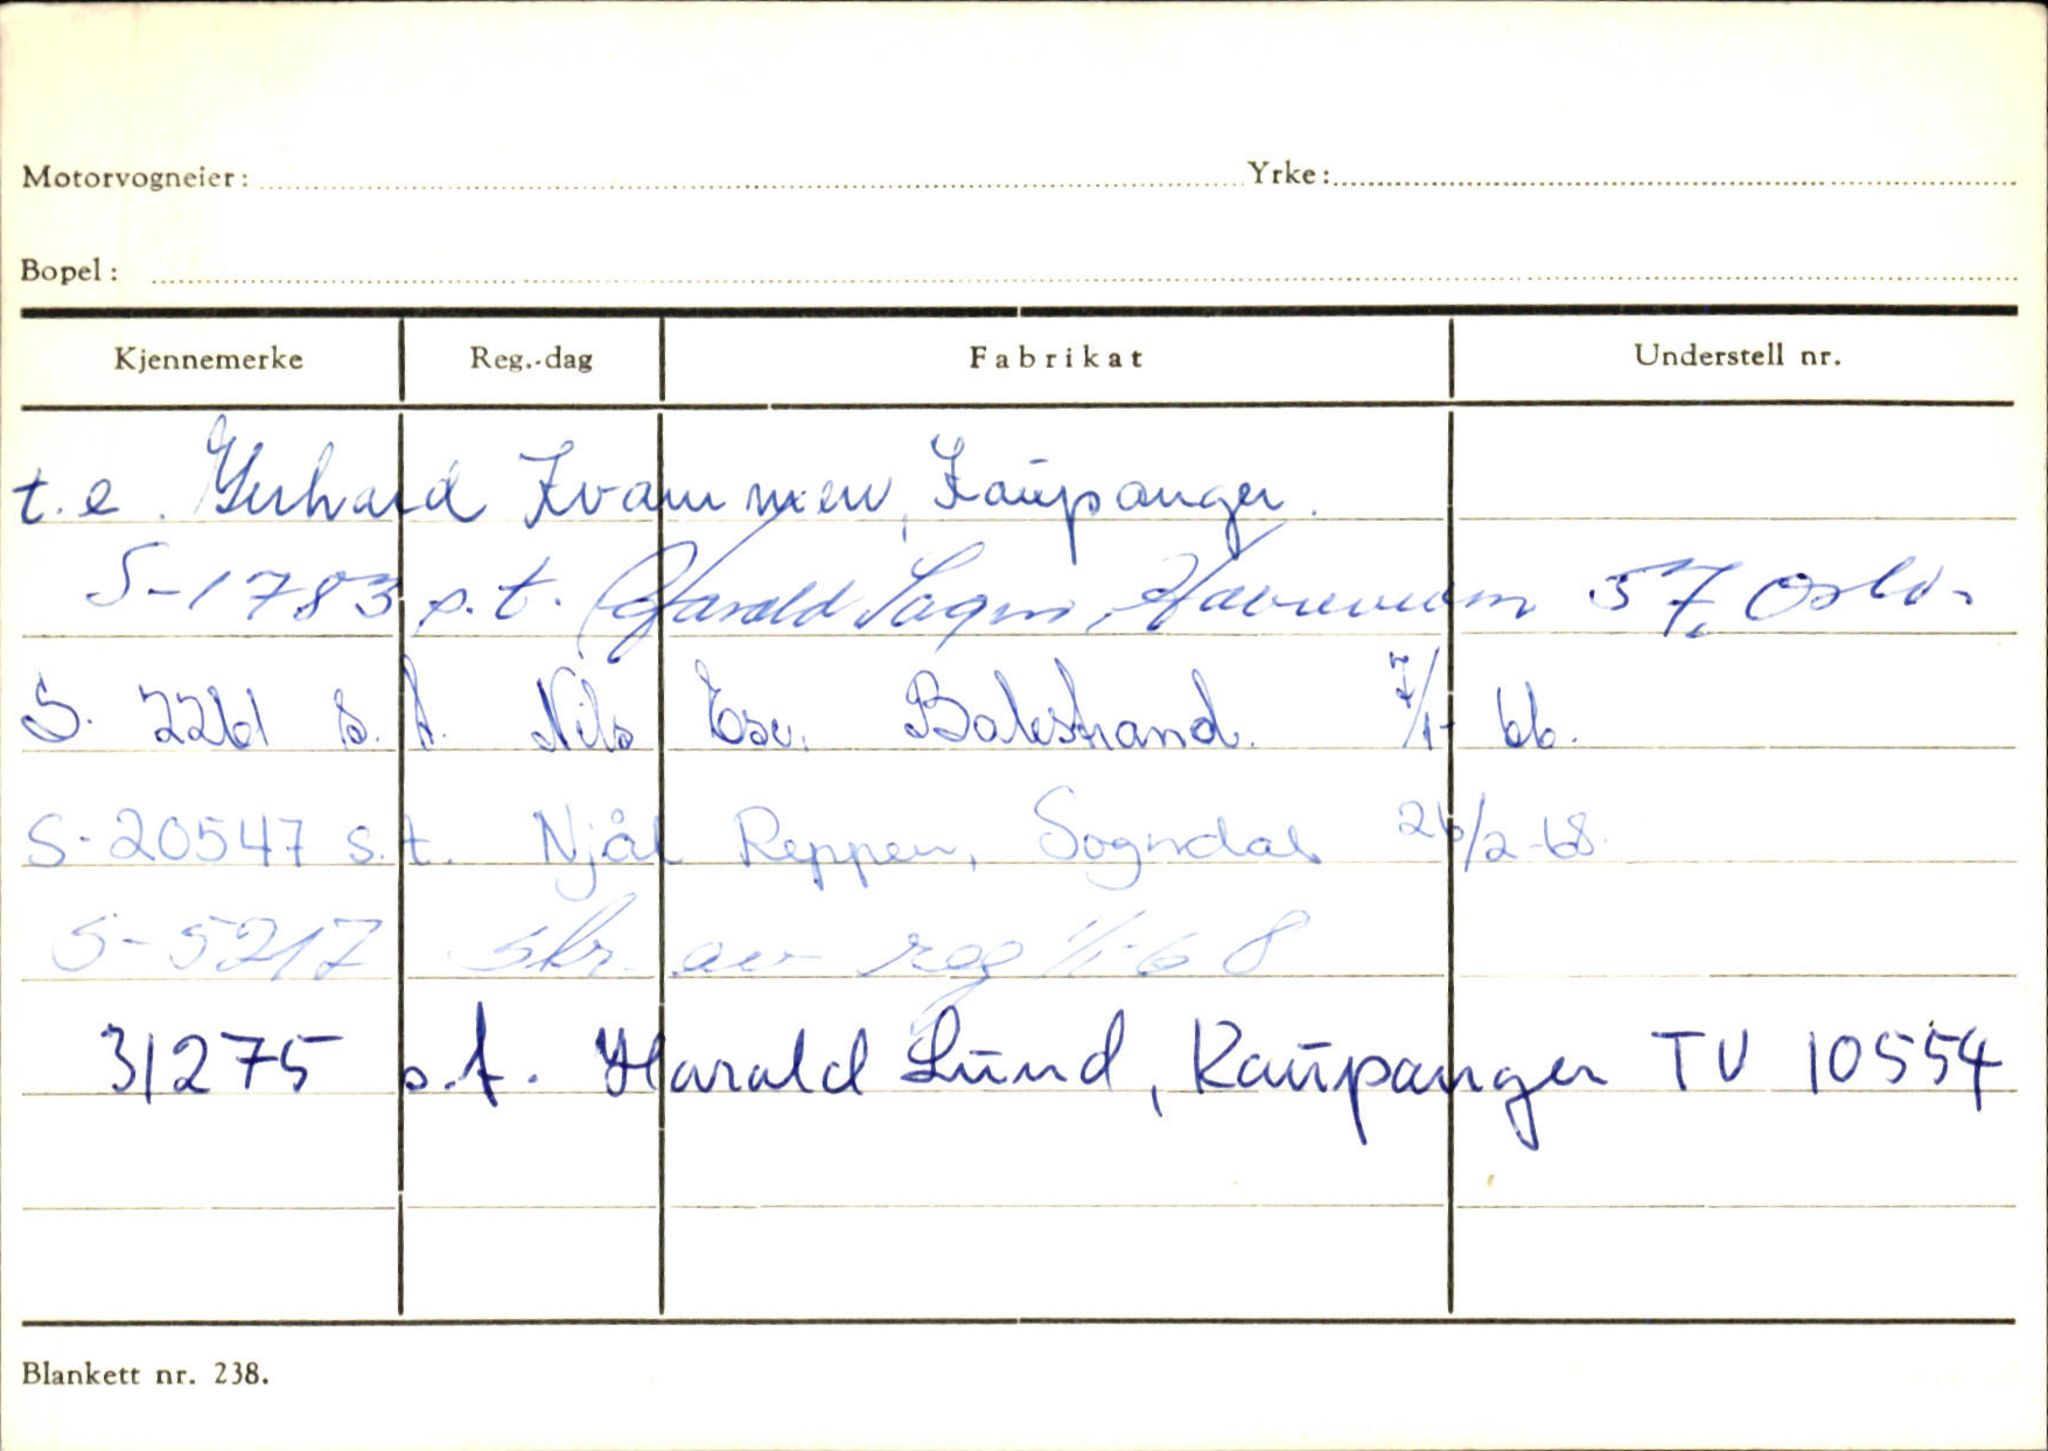 Motorvogneier: Yrke:
Bopel:
Kjennemerke Reg.-dag Fabrikat Understell nr.
t.e. Gerhard Kvammen, Kaupanger.
S-1783 s.t. Harald 57, Oslo.
S. 2261 s.t. Nils Ese. Balestrand. 7/1- 66.
S-20547 s.t. Njål Reppen, Sogndal 26/2-68.
S-5217 skr. av reg 1/1-68
31275 s.t. Harald Lund, Kaupanger TV 10554
Blankett nr. 238.